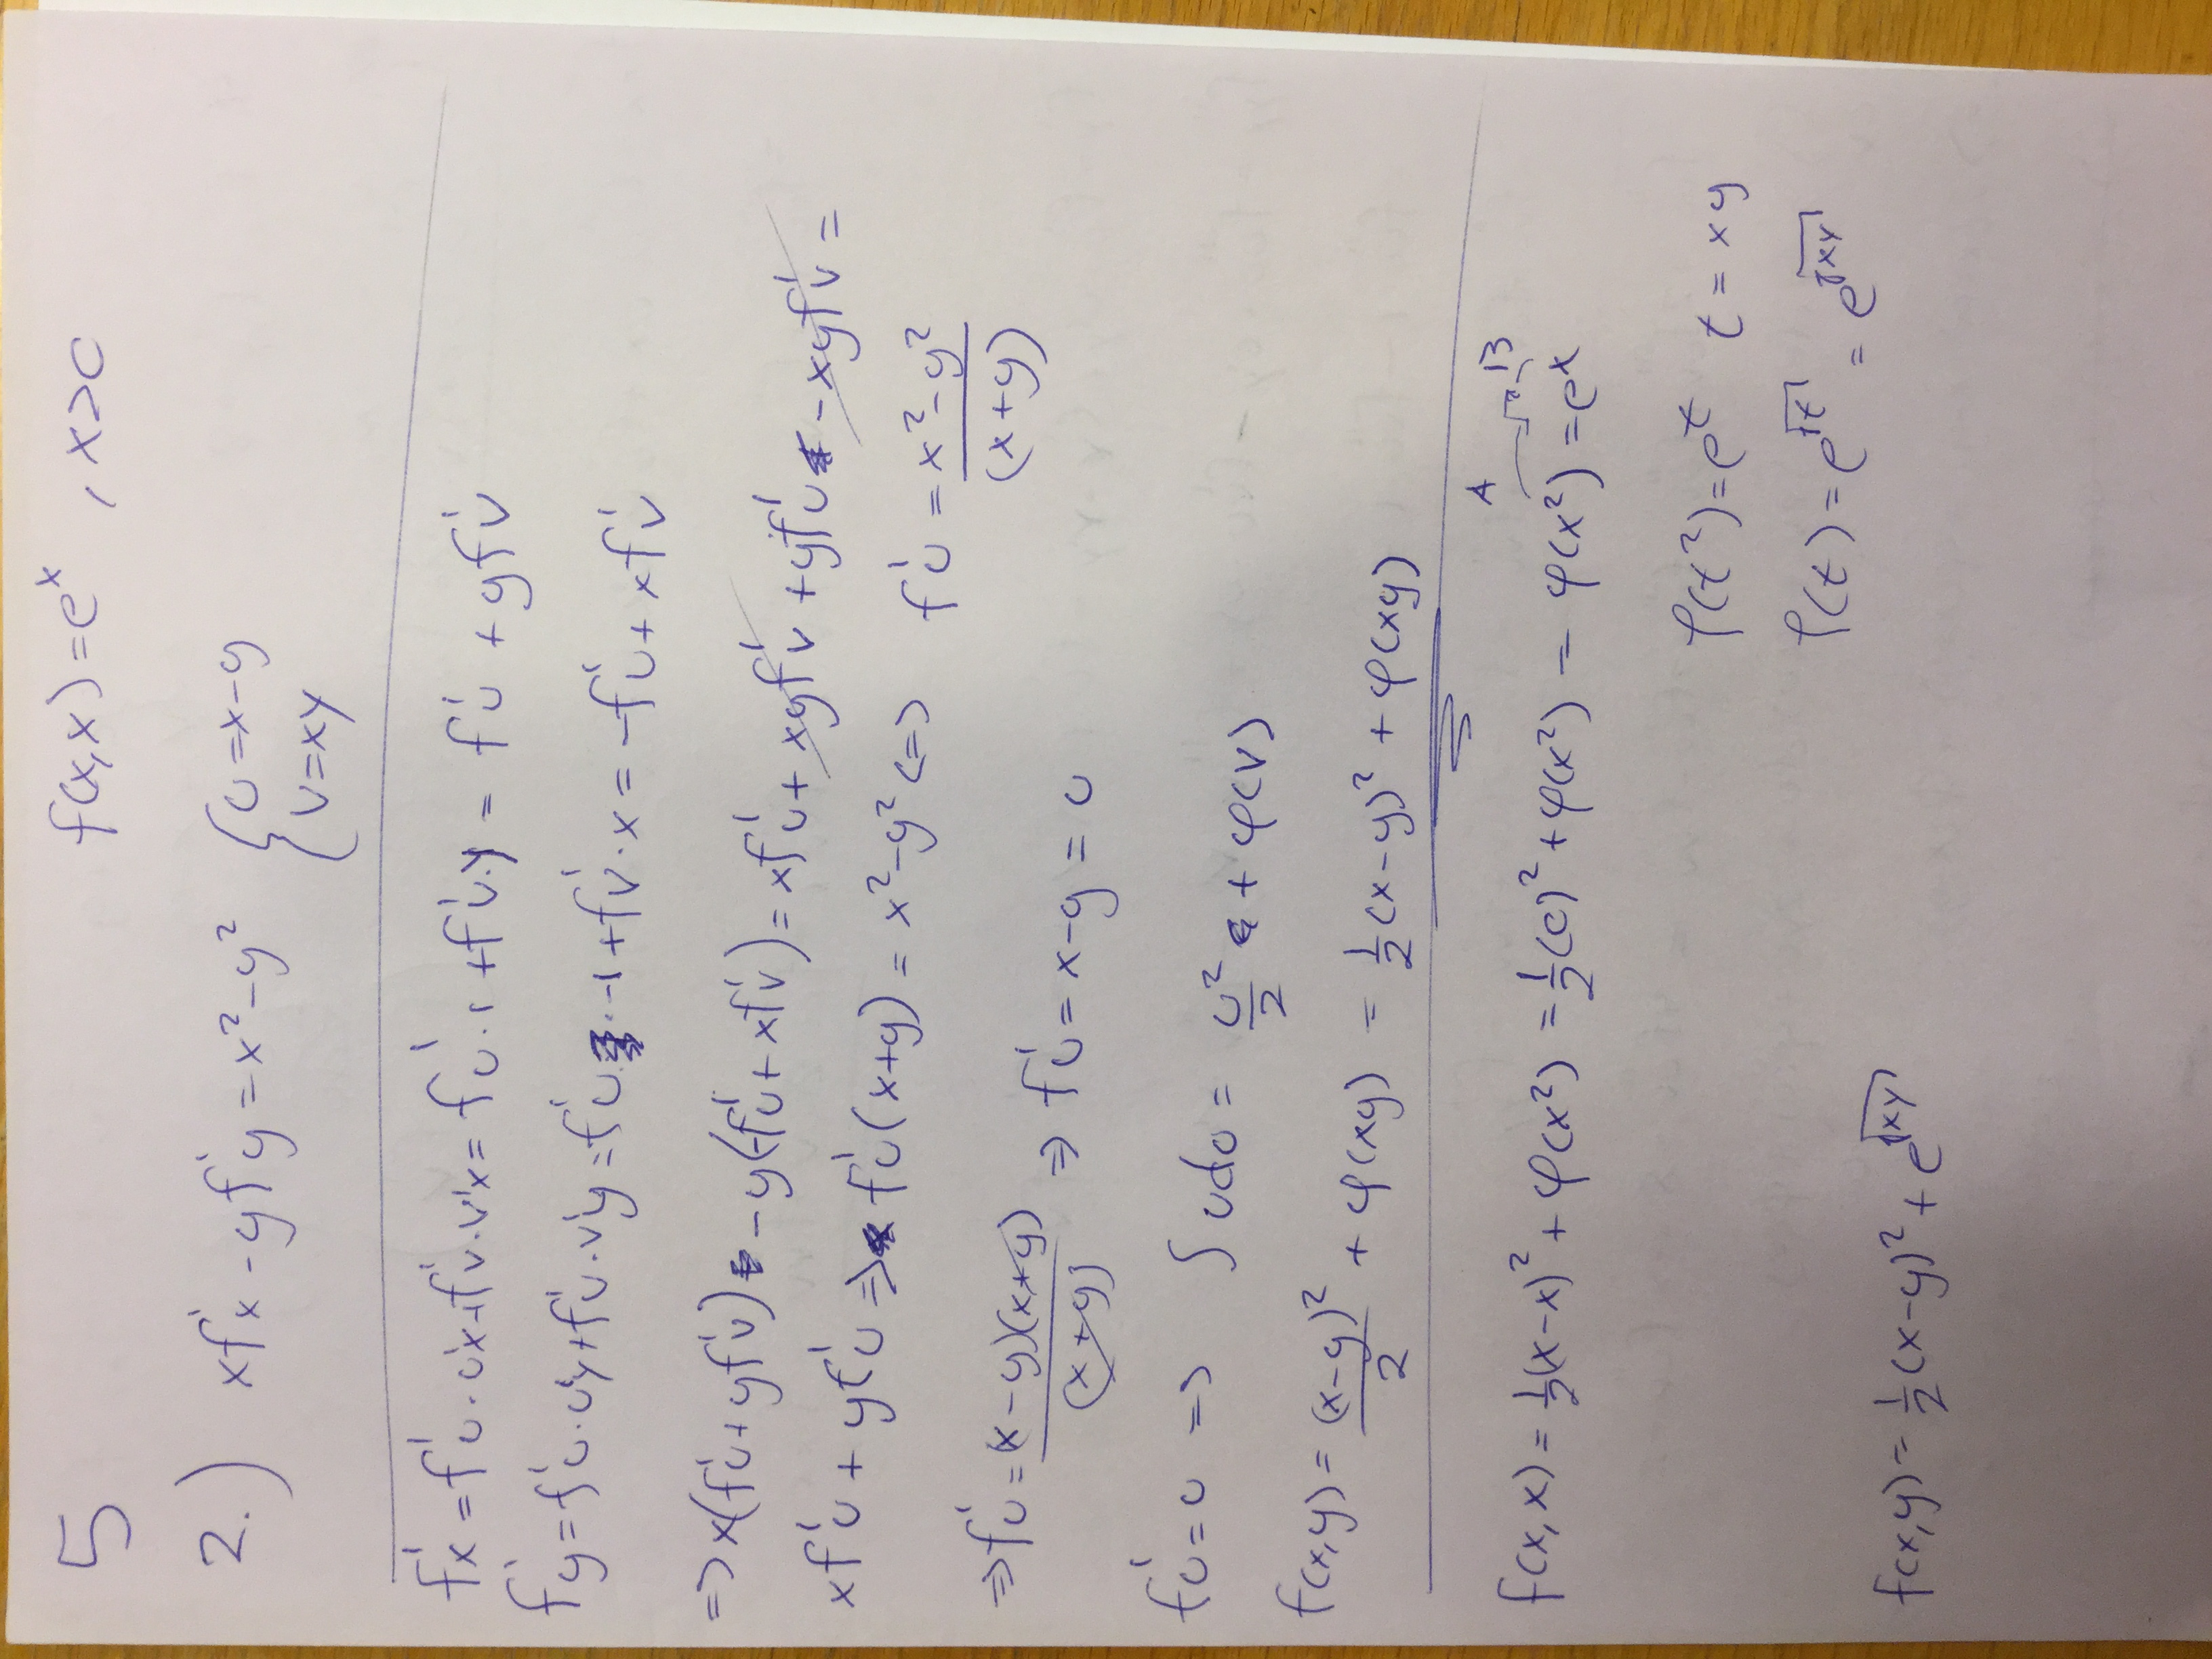 5
f(x,x) = e^x , x>0
2.) xf'x - yf'y = x² - y² { u = x-y
v = xy
f'x = f'u · u'x + f'v · v'x = f'u · 1 + f'v · y = f'u + yf'v
f'y = f'u · u'y + f'v · v'y = f'u · -1 + f'v · x = -f'u + xf'v
=> x(f'u + yf'v) - y(-f'u + xf'v) = xf'u + xyf'v + yf'u - xyf'v =
xf'u + yf'u => f'u(x+y) = x² - y² <=> f'u = x² - y² / (x+y)
=> f'u = (x-y)(x+y) / (x+y) => f'u = x-y = u
f'u = u => ∫ u du = u²/2 + φ(v)
f(x,y) = (x-y)²/2 + φ(xy) = 1/2 (x-y)² + φ(xy)
A √ B
f(x,x) = 1/2 (x-x)² + φ(x²) = 1/2 (0)² + φ(x²) = φ(x²) = e^x
φ(t²) = e^t t = xy
φ(t) = e^√t = e^√xy
f(x,y) = 1/2 (x-y)² + e^√xy